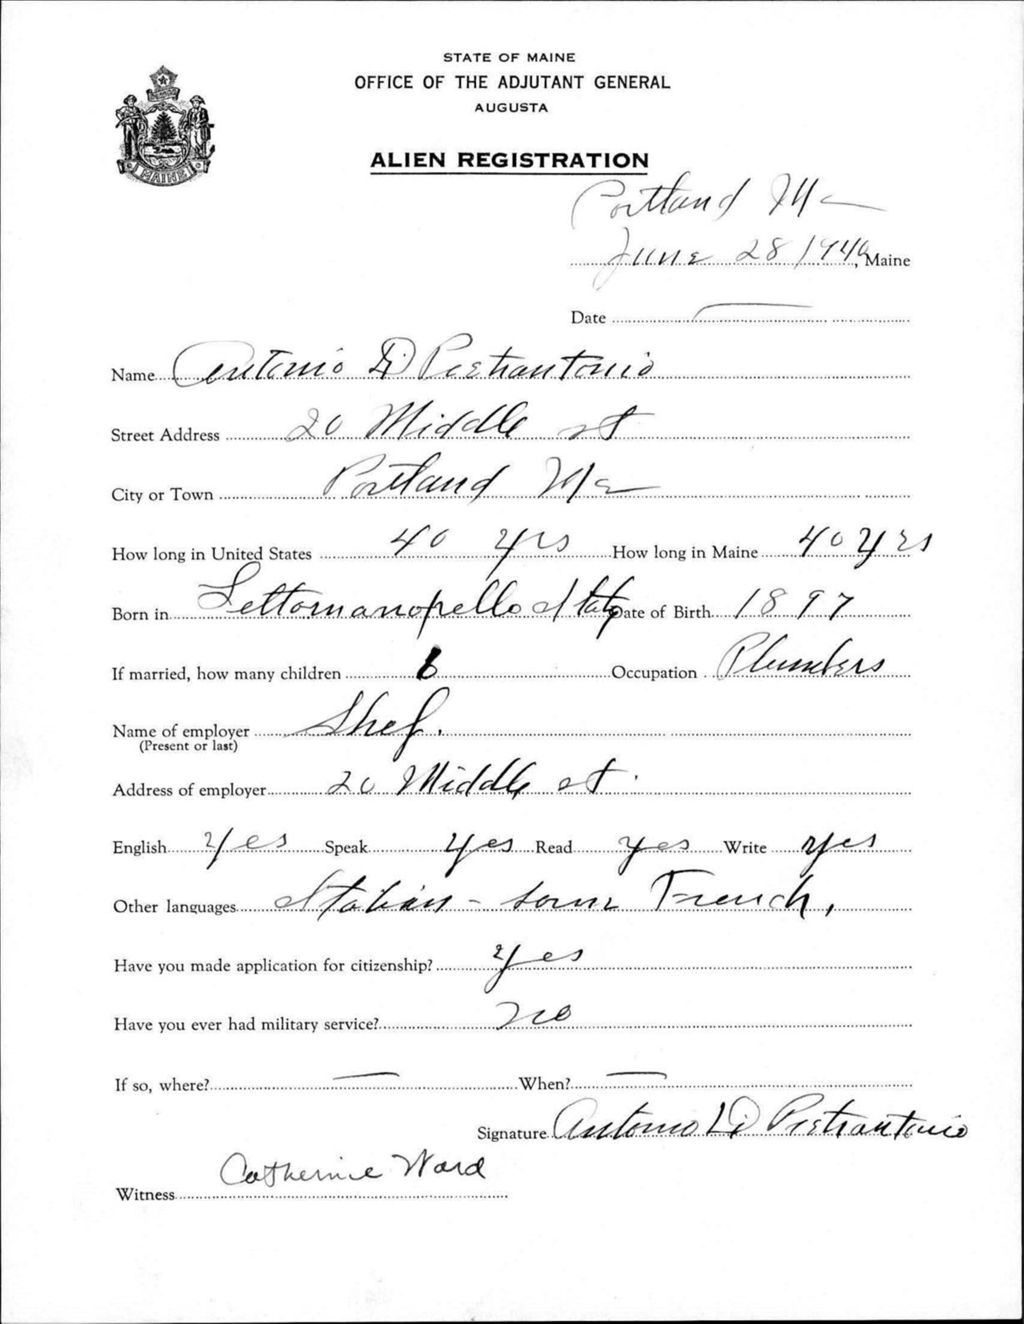 STATE OF MAINE
OFFICE OF THE ADJUTANT GENERAL
AUGUSTA
ALIEN REGISTRATION
MAINE
Portland Me
June 28 1940, Maine
Date
Name Antonio Di Pietrantonio
Street Address 20 Middle st
City or Town Portland Me
How long in United States 40 yrs How long in Maine 40 yrs
Born in Lettomanopello Italy Date of Birth 1897
If married, how many children 6 Occupation Plumbers
Name of employer
(Present or last)
Address of employer 20 Middle st.
English Yes Speak yes Read yes Write yes
Other languages Italian - some French,
Have you made application for citizenship? yes
Have you ever had military service? no
If so, where? — When? —
Signature Antonio Di Pietrantonio
Witness Catherine Ward